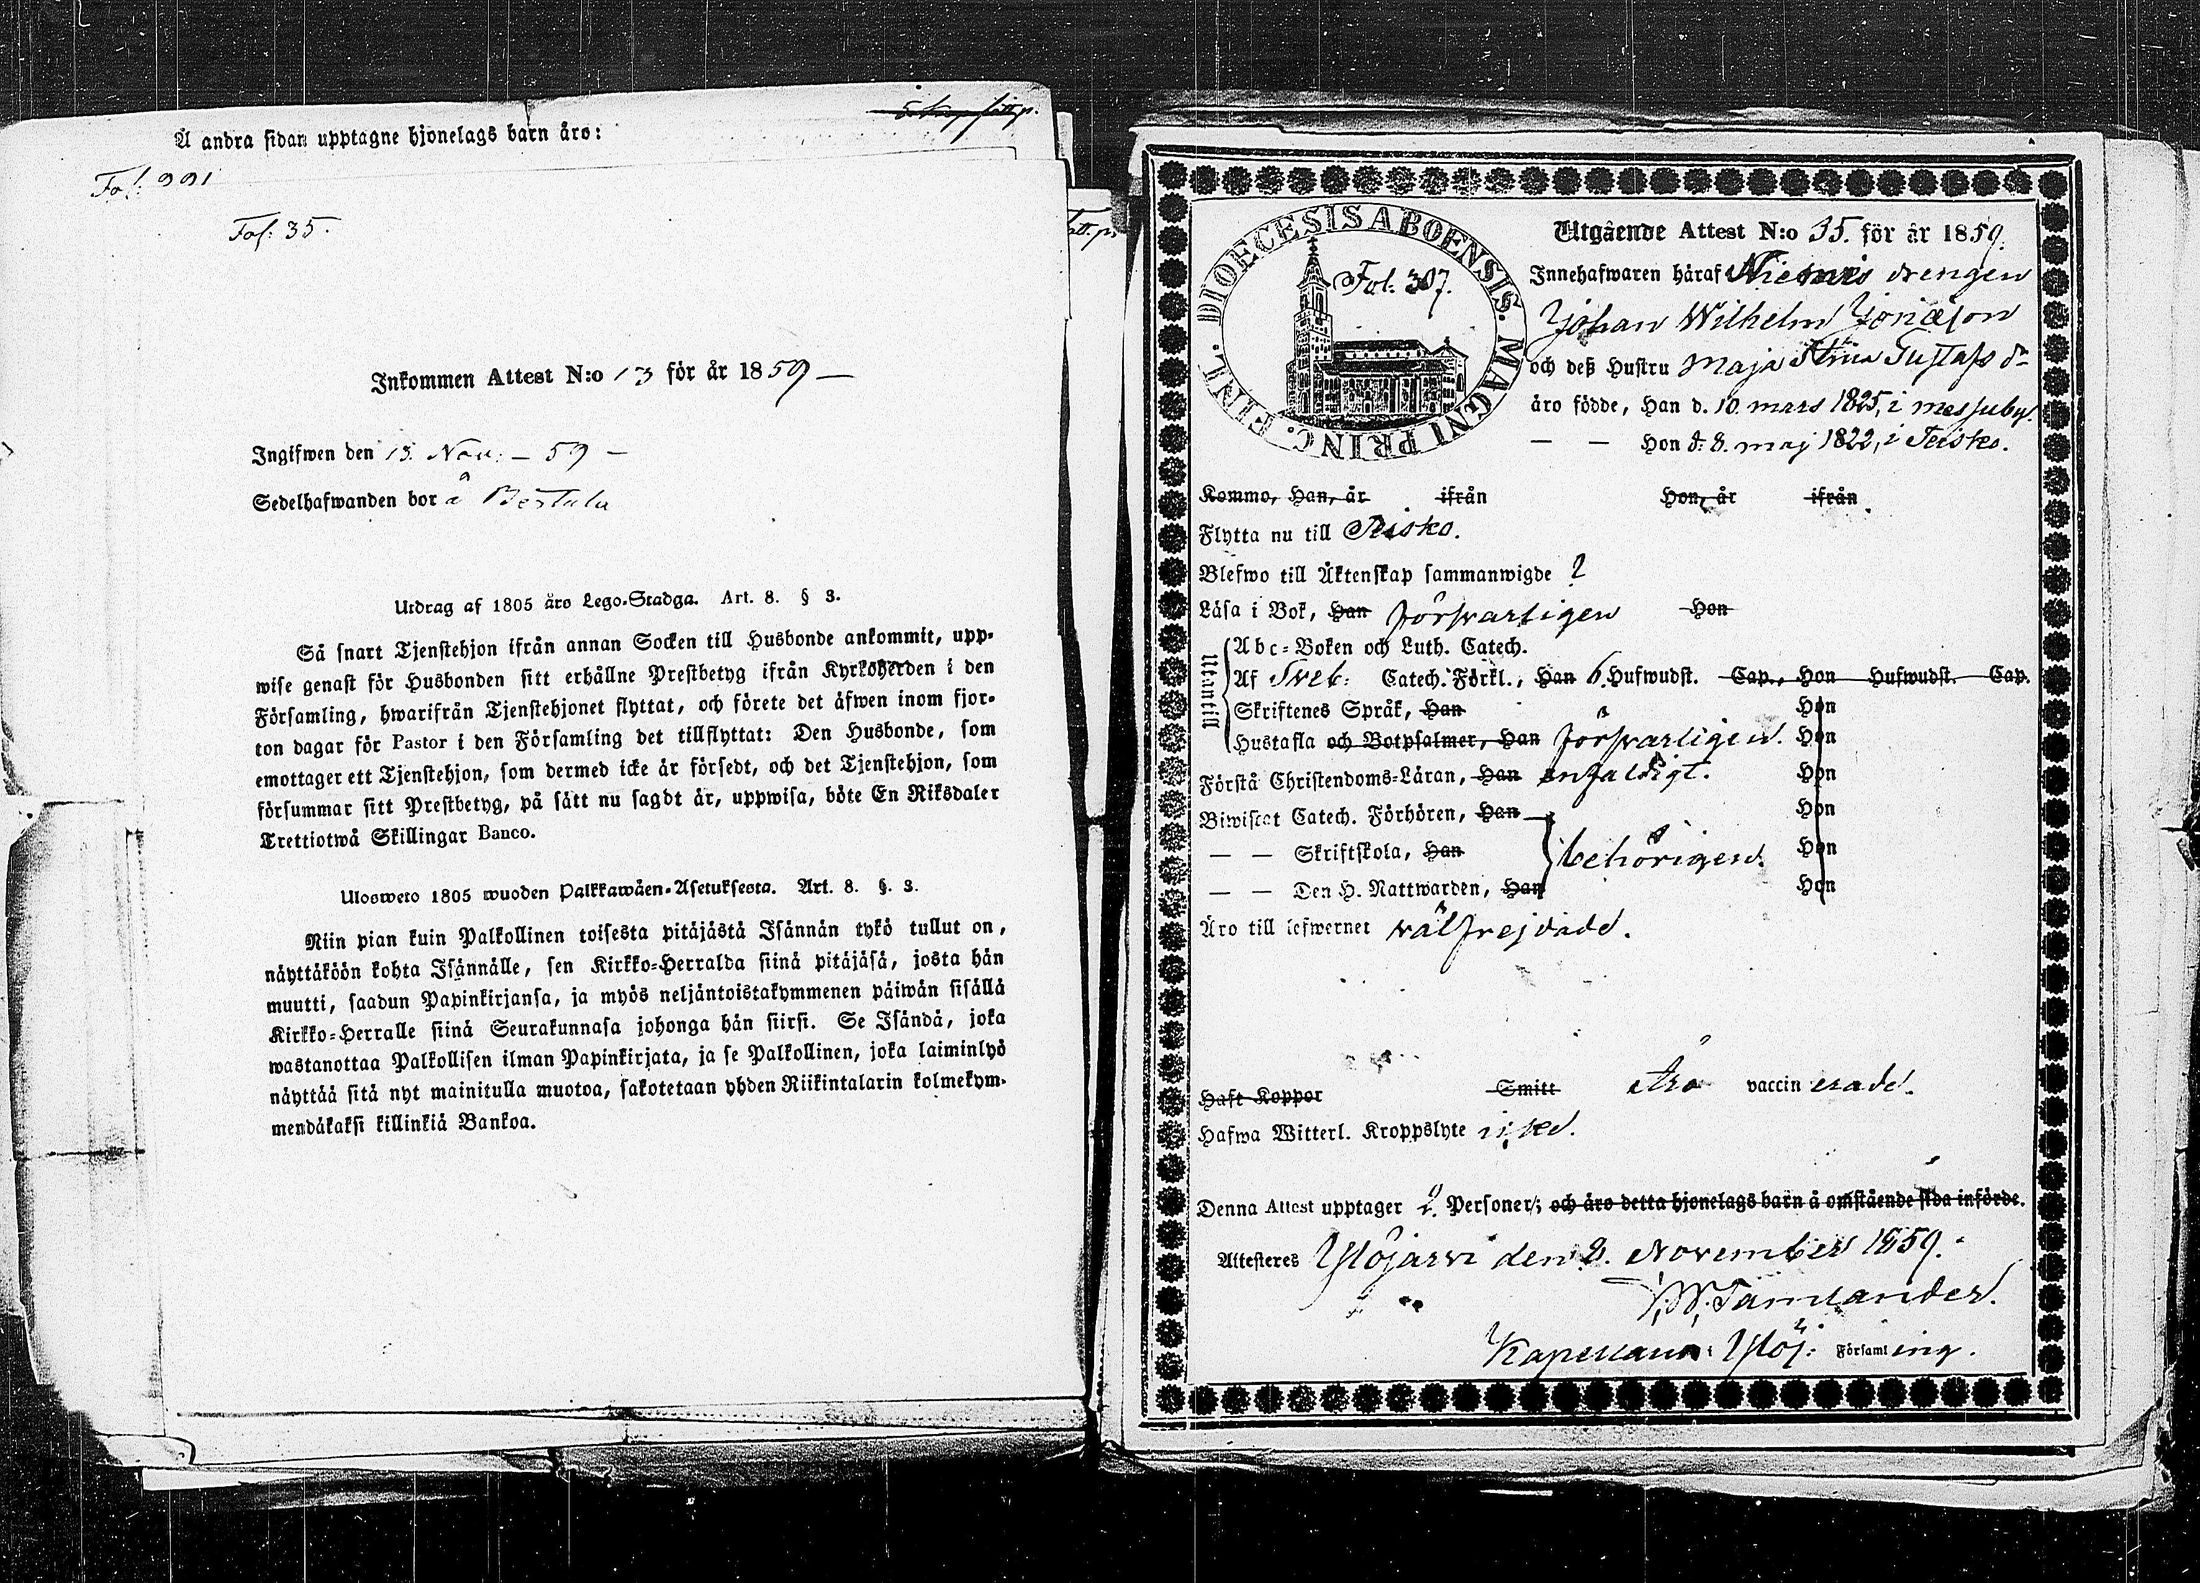 Å andra sidan upptagne hjonelags barn äro:
Fol: 991
Fol: 35.
Inkommen Attest N:o 13 för år 1859 —
Ingifwen den 13. Nov: – 59 –
Sedelhafwanden bor å
Utdrag af 1805 års Lego-Stadga. Art. 8. § 3.
Så snart Tjenstehjon ifrån annan Socken till Husbonde ankommit, upp-
wise genast för Husbonden sitt erhållne Prestbetyg ifrån Kyrkoherden i den
Församling, hwarifrån Tjenstehjonet flyttat, och förete det äfwen inom fjor-
ton dagar för Pastor i den Församling det tillflyttat: Den Husbonde, som
emottager ett Tjenstehjon, som dermed icke är försedt, och det Tjenstehjon, som
försummar sitt Prestbetyg, på sätt nu sagdt är, uppwisa, böte En Riksdaler
Trettiotwå Skillingar Banco.
Ulosweto 1805 wuoden Palkkawäen-Asetuksesta. Art. 8. §. 3.
Niin pian kuin Palkollinen toisesta pitäjästä Isännän tykö tullut on,
näyttäköön kohta Isännälle, sen Kirkko-Herralda siinä pitäjäsä, josta hän
muutti, saadun Papinkirjansa, ja myös neljäntoistakymmenen päiwän sisällä
Kirkko-Herralle siinä Seurakunnasa johonga hän siirsi. Se Isändä, joka
wastanottaa Palkollisen ilman Papinkirjata, ja se Palkollinen, joka laiminlyö
näyttää sitä nyt mainitulla muotoa, sakotetaan yhden Riikintalarin kolmekym-
mendäkaksi killinkiä Bankoa.
DIOECESIS ABOENSIS. MAGNI PRINC. FINL.
Fol. 307.
Utgående Attest N:o 35. för år 1859.
Innehafwaren häraf Niemis drengen
Johan Wilhelm Jonasson
och deß Hustru Maja Stina Gustafs dr
äro födde, Han d. 10. mars 1825, i messuby.
— — Hon d: 8. maj 1822, i Teisko.
Komme, Han, år ifrån Hon, år ifrån
Flytta nu till Teisko.
Blefwo till Äktenskap sammanwigde ?
Läsa i Bok, Han försvarligen Hon
Utantill
Abc-Boken och Luth. Catech.
Af Sveb: Catech. Förkl., Han 6. Hufwudst. Cap., Hon Hufwudst. Cap.
Skriftenes Språk, Han Hon
Hustafla och Botpsalmer, Han försvarligen. Hon
Förstå Christendoms-Läran, Han enfaldigt. Hon
Biwistat Catech. Förhören, Han Hon
— — Skriftskola, Han behörigen. Hon
— — Den H. Nattwarden, Han Hon
Äro till lefwernet välfrejdade.
Haft Koppor Smitt Äro vaccinerade.
Hafwa Witterl. Kroppslyte icke.
Denna Attest upptager 2. Personer; och äro detta hjonelags barn å omstående sida införde.
Attesteres Ylöjärvi den 2. November 1859.
Kapellan i Ylöj: Församling.